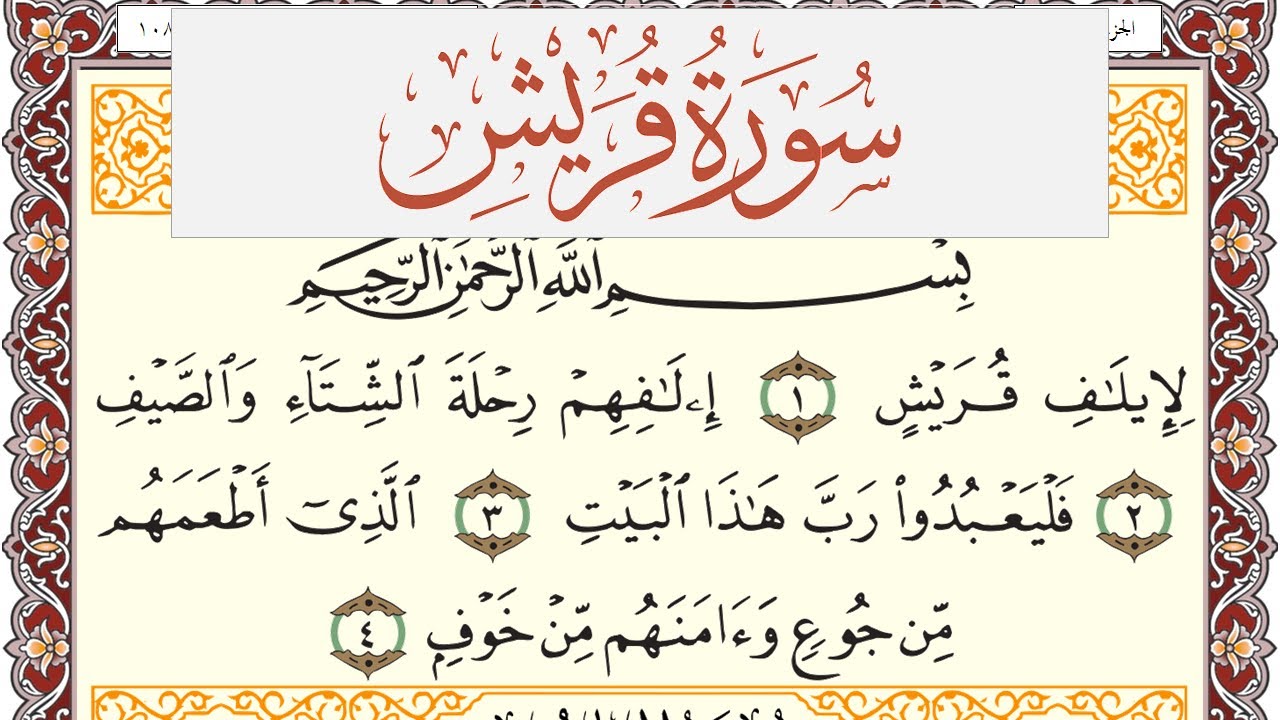 الجز
١٠٨
سُورَةُ قُرَيْشٍ
بِسْمِ ٱللَّهِ ٱلرَّحْمَٰنِ ٱلرَّحِيمِ
لِإِيلَٰفِ قُرَيْشٍ ١ إِۦلَٰفِهِمْ رِحْلَةَ ٱلشِّتَآءِ وَٱلصَّيْفِ
٢ فَلْيَعْبُدُوا۟ رَبَّ هَٰذَا ٱلْبَيْتِ ٣ ٱلَّذِىٓ أَطْعَمَهُم
مِّن جُوعٍ وَءَامَنَهُم مِّنْ خَوْفٍۭ ٤